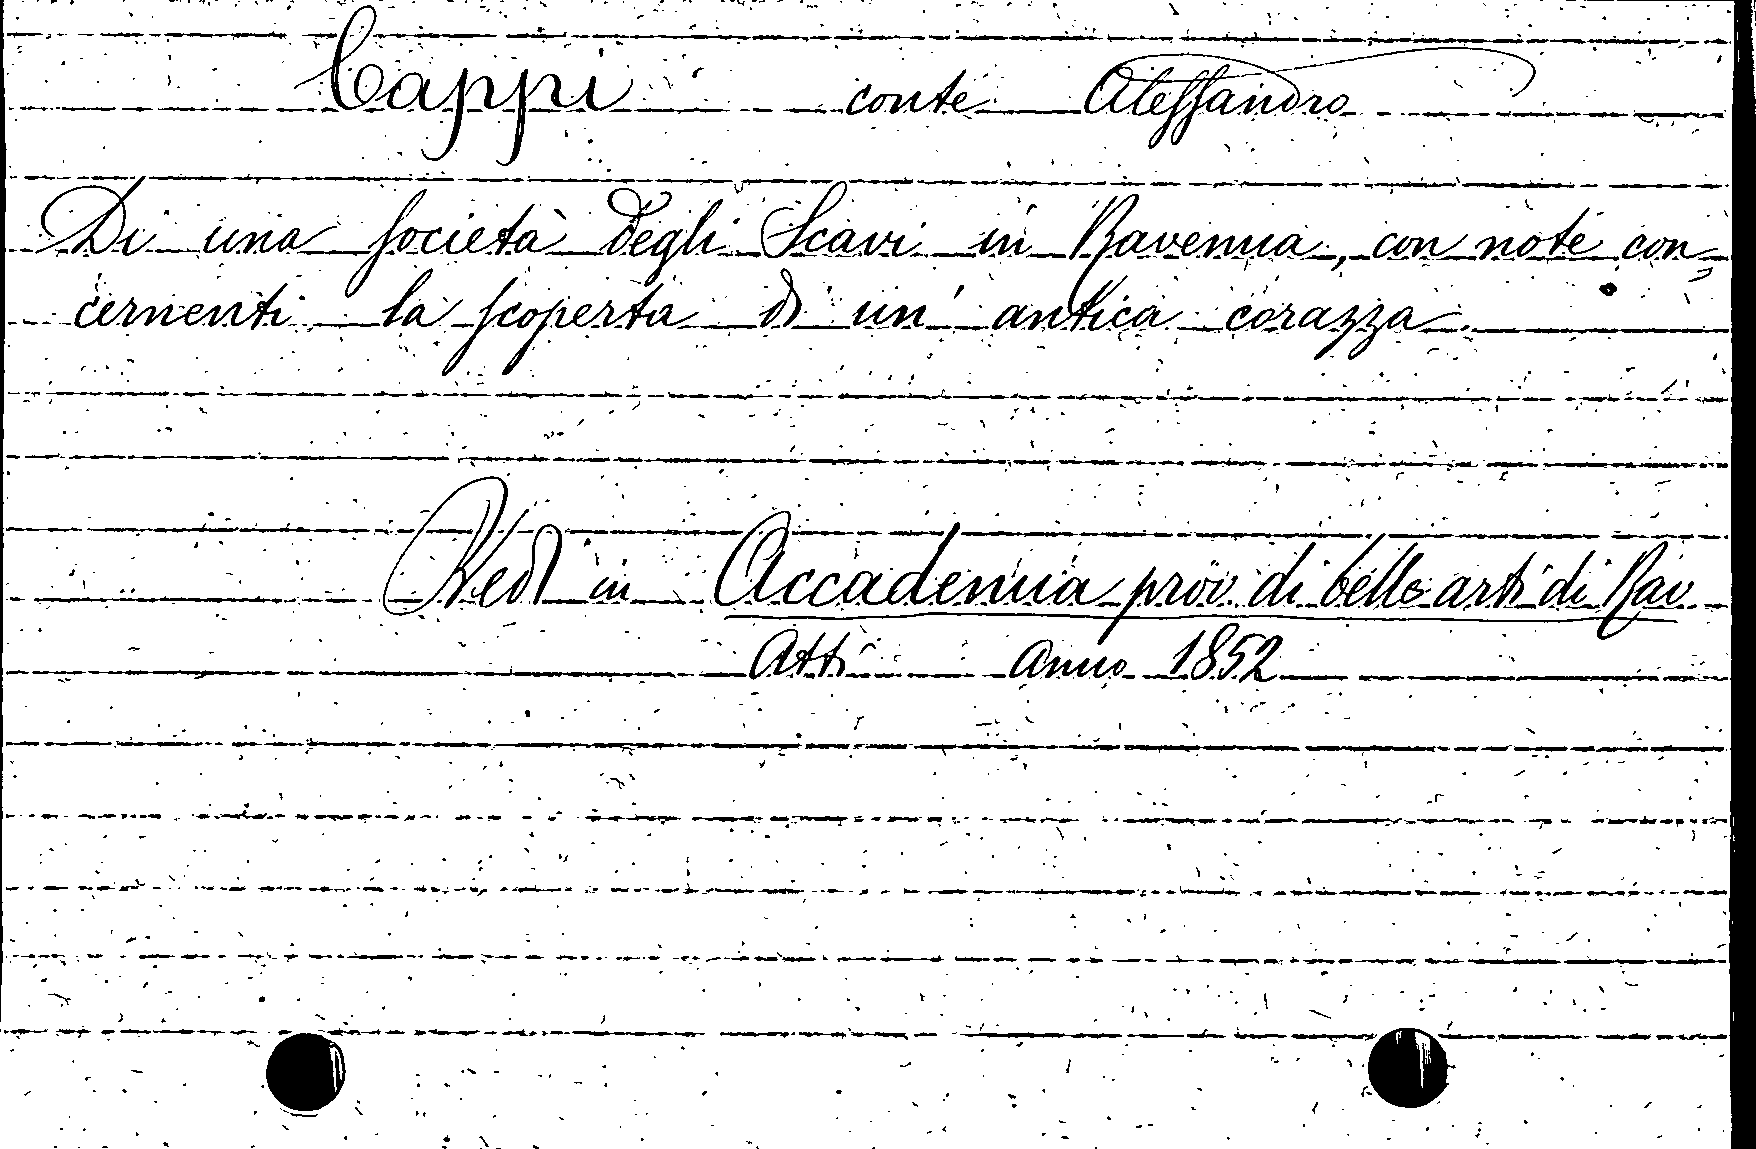 Cappi conte Alessandro
Di una società degli Scavi in Ravenna, con note con,
cernenti la scoperta di un' antica corazza.
Vedi in Accademia prov. di belle arti di Rav
Atti anno 1852